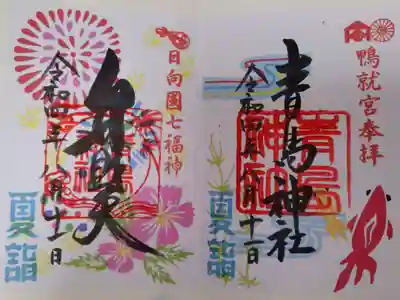 鴨就宮奉拝
青島神社
令和四年八月十一日
夏詣
日向國七福神
弁財天
令和四年八月十一日
夏詣